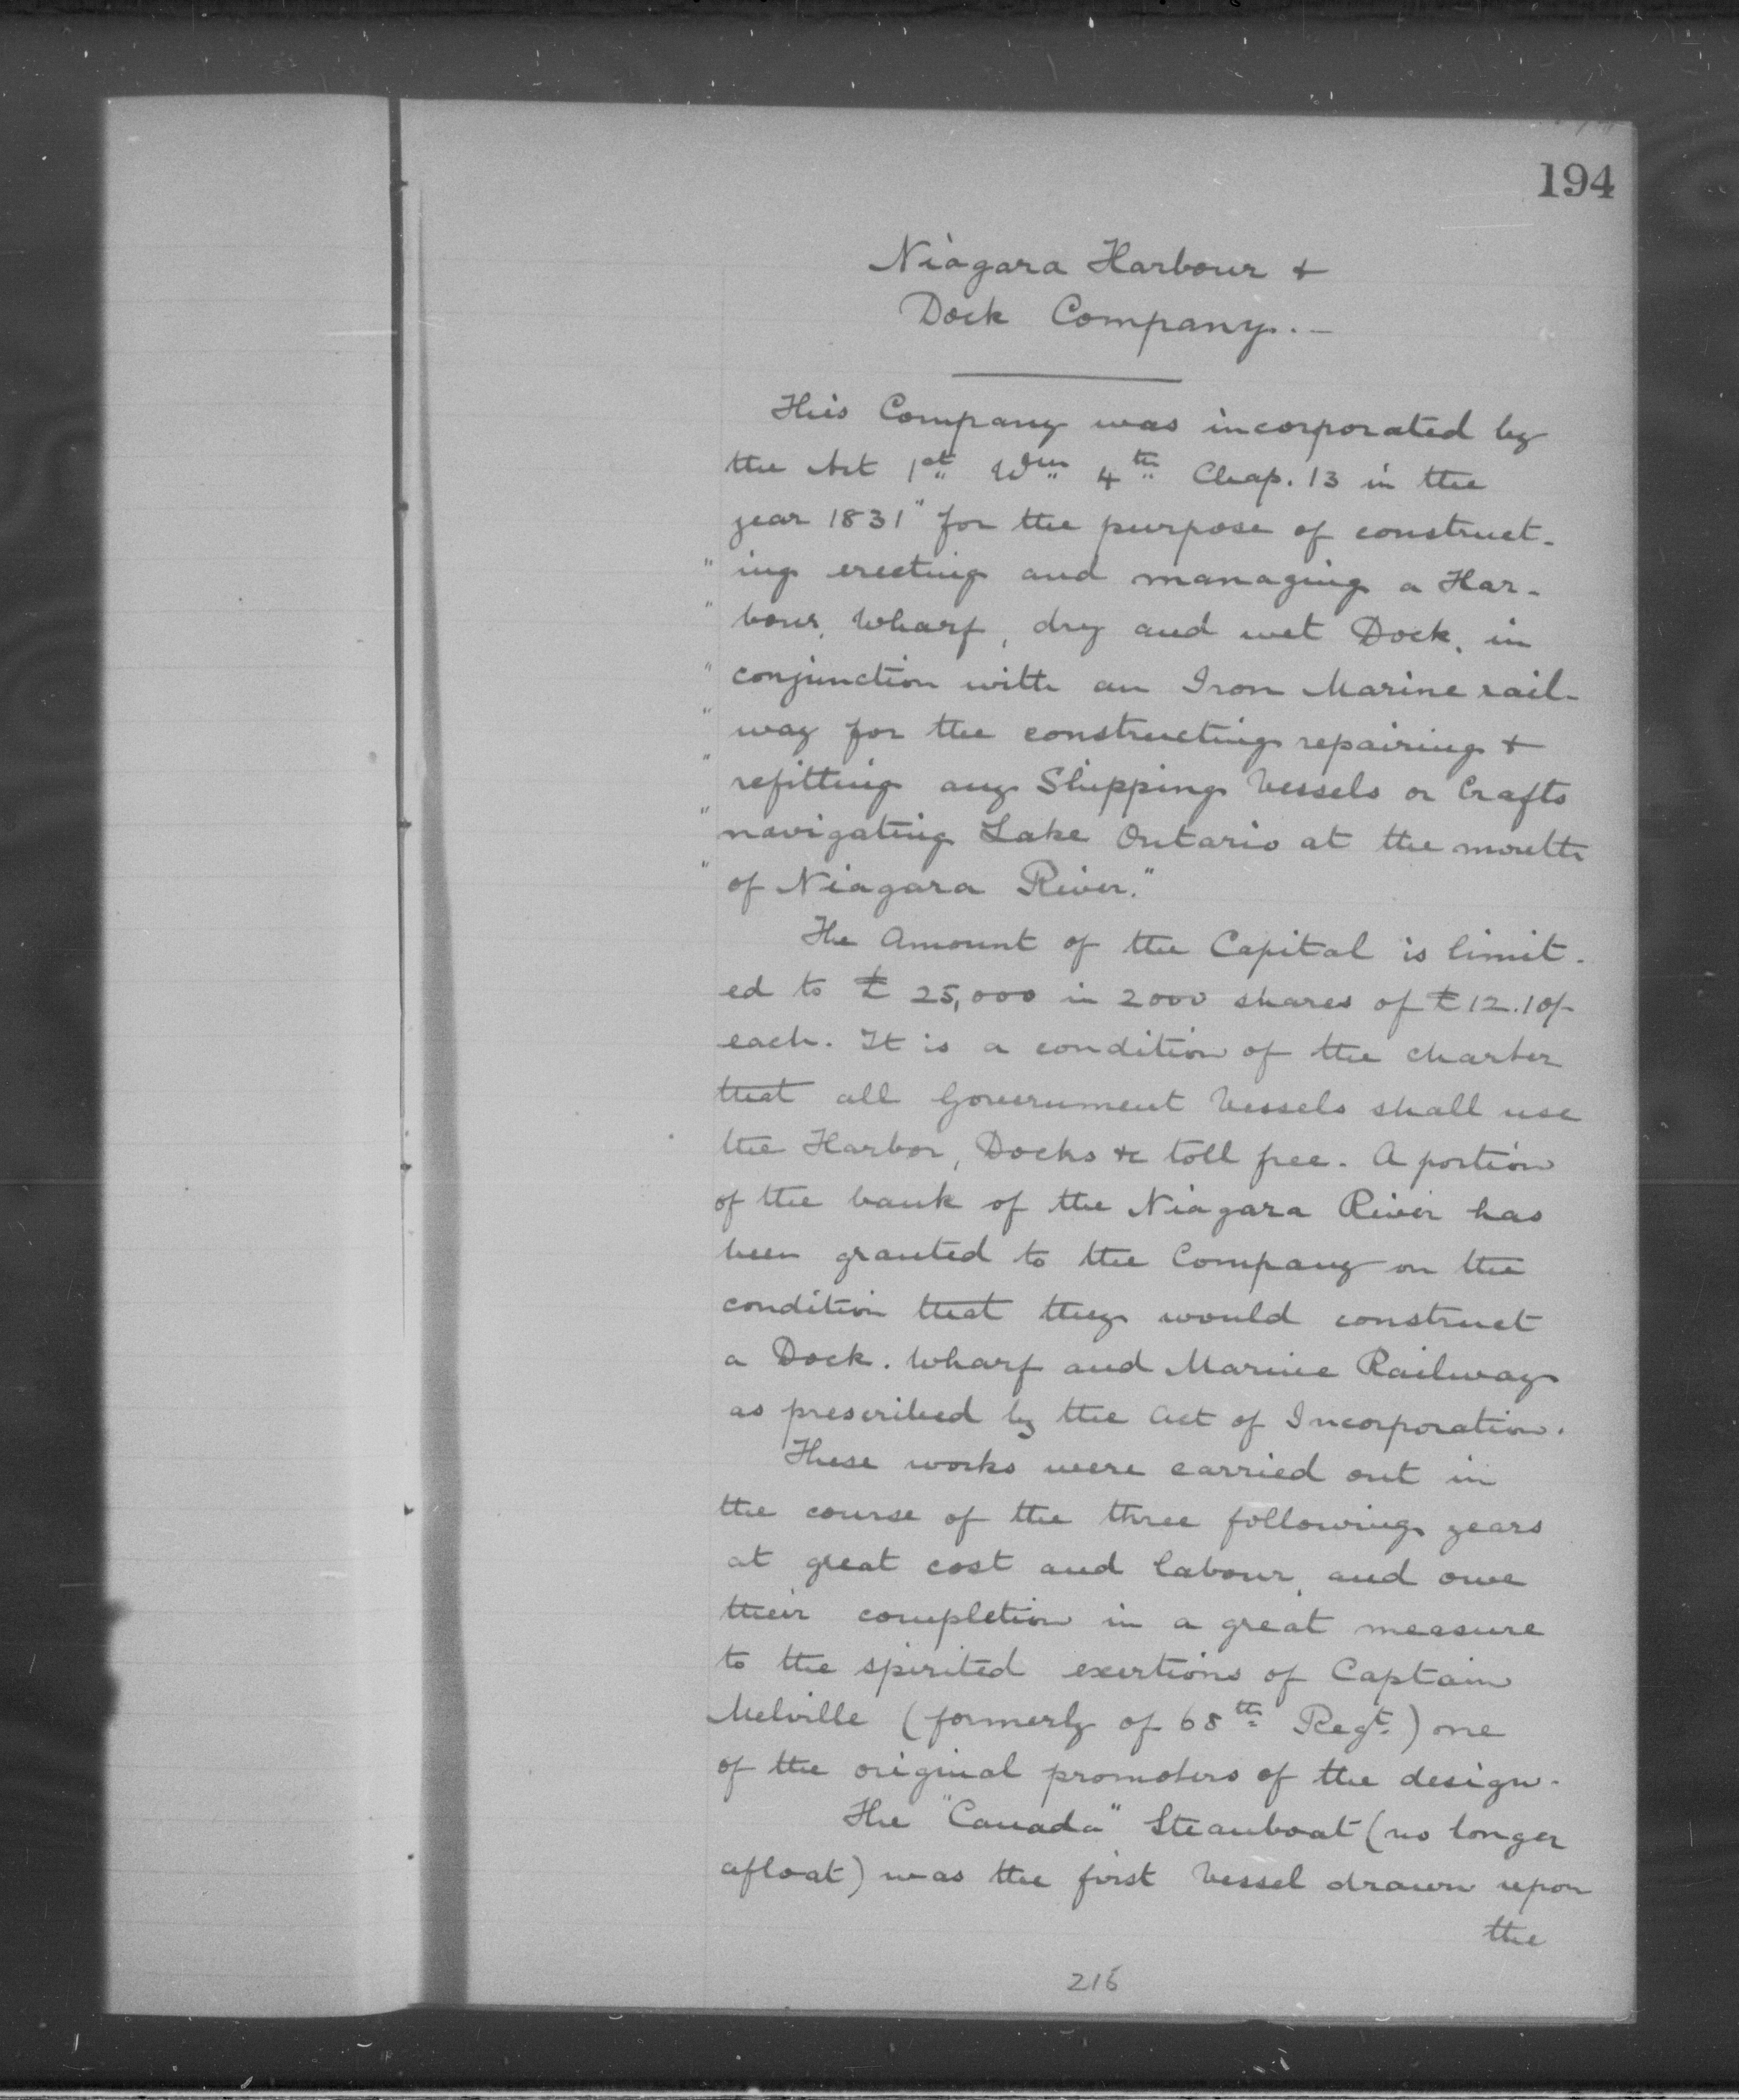 194
Niagara Harbour &
Dock Company. —
This Company was incorporated by
the Act 1st Wm 4th Chap. 13 in the
year 1831 "for the purpose of construct-
" ing erecting and managing a Har-
" bour, Wharf, dry and wet Dock, in
" conjunction with an Iron Marine rail-
" way for the constructing repairing &
" refitting any Shipping Vessels or Crafts
" navigating Lake Ontario at the mouth
" of Niagara River."
The Amount of the Capital is limit-
ed to £ 25,000 in 2000 shares of £12.10/-
each. It is a condition of the charter
that all Government Vessels shall use
the Harbor, Docks &c toll free. A portion
of the bank of the Niagara River has
been granted to the Company on the
condition that they would construct
a Dock. Wharf and Marine Railway
as prescribed by the Act of Incorporation.
These works were carried out in
the course of the three following years
at great cost and labour, and owe
their completion in a great measure
to the spirited exertions of Captain
Melville (formerly of 68th Regt.) one
of the original promoters of the design.
The "Canada" Steamboat (no longer
afloat) was the first Vessel drawn upon
the
216